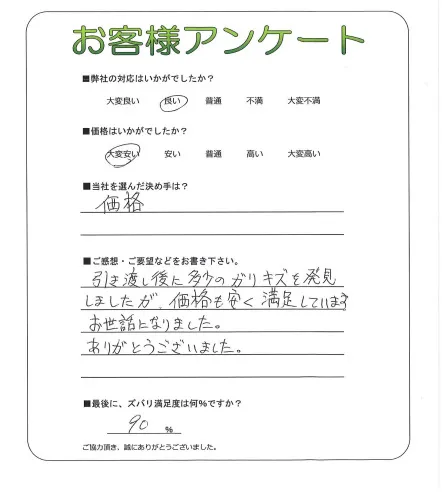 お客様アンケート
■弊社の対応はいかがでしたか？
大変良い 良い 普通 不満 大変不満
■価格はいかがでしたか？
大変安い 安い 普通 高い 大変高い
■当社を選んだ決め手は？
価格
■ご感想・ご要望などをお書き下さい。
引き渡し後に多少のガリキズを発見
しましたが、価格も安く満足しています
お世話になりました。
ありがとうございました。
■最後に、ズバリ満足度は何％ですか？
90 ％
ご協力頂き、誠にありがとうございました。